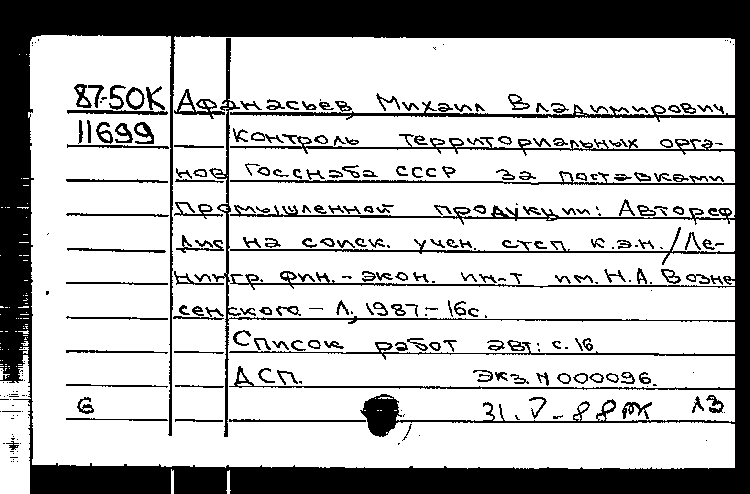 87-50К Афанасьев, Михаил Владимирович.
11699 Контроль территориальных орга-
нов Госснаба СССР за поставками
промышленной продукции: Автореф.
дис. на соиск. учен. степ. к.э.н. / Ле-
нингр. фин.-экон. ин-т им. Н.А. Возне
сенского. - Л., 1987. - 16с.
Список работ авт: с. 16.
ДСП. Экз. N 000096.
6 31.V-88 ЛЗ